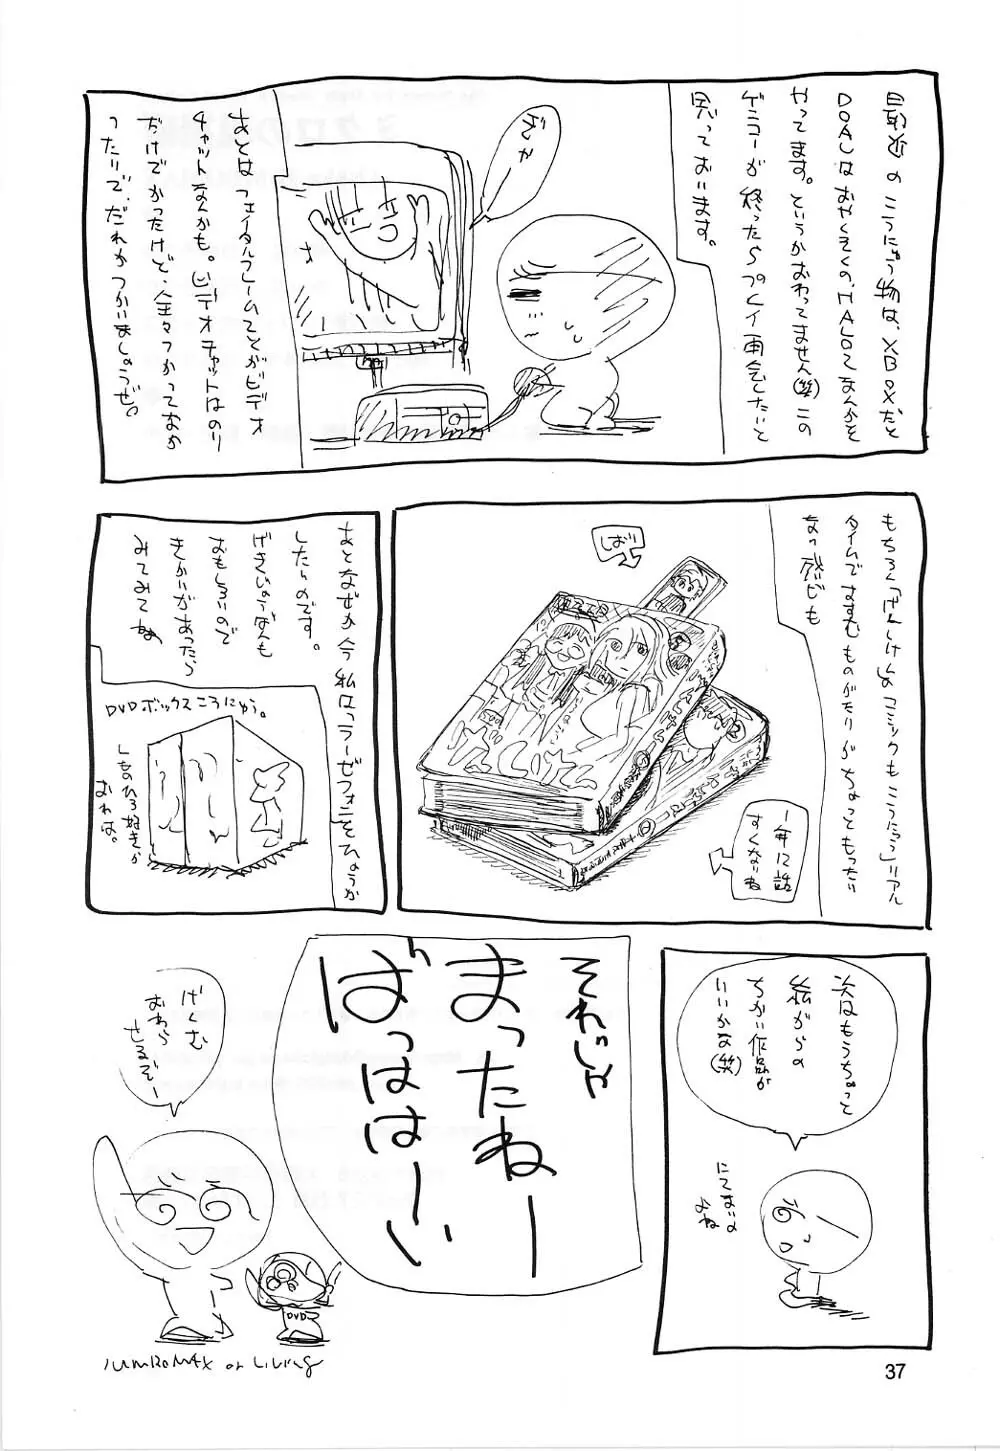 最近のこうにゅう物は、XBOXだと
DOAUはおやくそくの、HALOてなんかを
やってます。というかおわってません(笑)この
ゲンコーが終ったらプレイ再会したいと
思っております。
ざんか
あとはフェイタルフレームてとかビデオ
チャットなんかも。ビデオチャットはのり
だけでかったけど、全々つかっておか
ったりで、だれかつかいましょうぜ。
もちろん「げんしけん」のコミックもこうたっう」リアル
タイムですすむものがたりがちょっともったい
しばり
1年12話
すくないね
あとなぜか今私はラーゼフォンをひょうか
したいのです。
げきじょうばんも
おもしろいので
きかいがあったら
みてみてね
DVDボックスこうにゅう。
しものひろ好きが
おれば。
次はもうちょっと
絵がらの
ちかい作品が
いいかな(笑)
にてないの
よね
それじゃ
まったねー
ばっははーい
げんこう
おわら
せるぞー
DVD
or Living
37